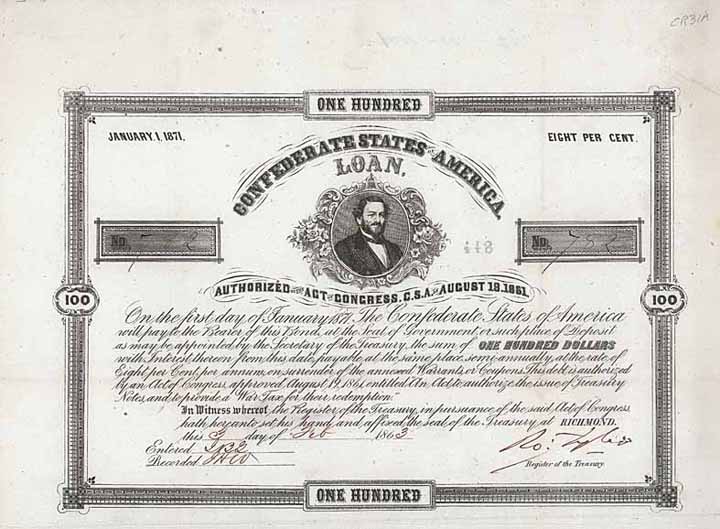 CR31A
ONE HUNDRED
JANUARY. 1. 1871.
EIGHT PER CENT.
CONFEDERATE STATES OF AMERICA
LOAN.
No.
No. 752
AUTHORIZED BY THE ACT OF CONGRESS, C.S.A. OF AUGUST 19. 1861.
100
100
On the first day of January 1871, The Confederate States of America
will pay to the Bearer of this Bond, at the Seat of Government, or such place of Deposit
as may be appointed by the Secretary of the Treasury, the sum of ONE HUNDRED DOLLARS
with Interest thereon from this date, payable at the same place semi-annually, at the rate of
Eight per Cent, per annum, on surrender of the annexed Warrants, or Coupons. This debt is authorized
by an Act of Congress, approved August 19, 1861, entitled "An Act to authorize the issue of Treasury
Notes, and to provide a War Tax for their redemption."
In Witness whereof, the Register of the Treasury, in pursuance of the said Act of Congress
hath hereunto set his hand and affixed the seal of the Treasury, at RICHMOND.
this 2 day of Feb 1863
Entered
Recorded
Ro: Tyler
Register of the Treasury.
ONE HUNDRED